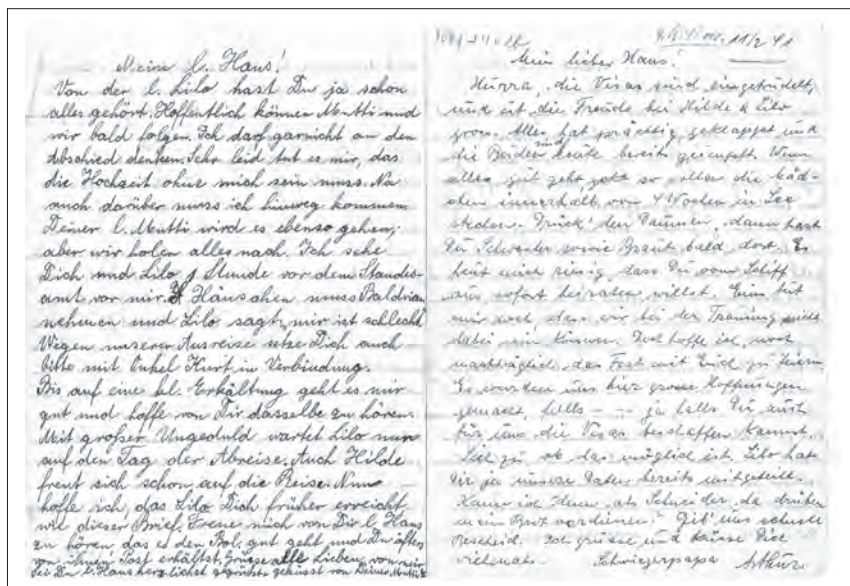 Meine l. Hans!
Von der l. Lilo hast Du ja schon
alles gehört. Hoffentlich können Mutti und
wir bald folgen. Ich darf garnicht an den
Abschied denken. Sehr leid tut es mir, das
die Hochzeit ohne mich sein muss. Na
auch darüber muss ich hinweg kommen
Deiner l. Mutti wird es ebenso gehen,
aber wir holen alles nach. Ich sehe
Dich und Lilo 1 Stunde vor dem Standes-
amt vor mir. Hänschen muss Baldrian
nehmen und Lilo sagt, mir ist schlecht
Wegen unserer Ausreise setze Dich auch
bitte mit Onkel Kurt in Verbindung.
Bis auf eine kl. Erkältung geht es mir
gut und hoffe von Dir dasselbe zu hören.
Mit großer Ungeduld wartet Lilo nun
auf den Tag der Abreise. Auch Hilde
freut sich schon auf die Reise. Nun
hoffe ich, das Lilo Dich früher erreicht
wie dieser Brief. Freue mich von Dir l. Hans
zu hören, das es den gut geht und Du öfter
von ihnen Post erhältst. Grüsse alle Lieben von mir
sei Du l. Hans herzlichst gegrüsst geküsst von Deiner
11/2 41
Mein lieber Hans!
Hurra, die Visas sind eingetrudelt,
und ist die Freude bei Hilde & Lilo
gross. Alles hat prächtig geklappt und
die Beiden sind heute bereits Wenn
alles gut geht, so die Mäd-
chen innerhalb von 4 Wochen in See
stechen. Drück' den Daumen, dann hast
Du Schwester sowie Braut bald dort. Es
freut mich riesig, dass Du vom Schiff
aus sofort heiraten willst. Eins tut
mir weh, dass wir bei der Trauung nicht
dabei sein können. Doch hoffe ich, noch
nachträglich das Fest mit Euch zu feiern.
Es wurden uns hier grosse Hoffnungen
gemacht, falls - - ja falls Du auch
für uns die Visas beschaffen kannst.
Sieh zu ob das möglich ist. Lilo hat
Dir ja unsere Daten bereits mitgeteilt.
Kann ich denn als Schneider da drüben
mein Brot verdienen? Gib' uns schnell
Bescheid. Ich grüsse und küsse Dich
vielmals. Schwiegerpapa Arthur